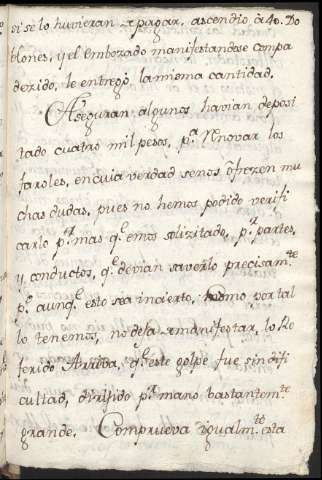 si se lo huvieran a pagar, ascendio à 40. Do
blones, y el embozado manifestandose compa
dezido, le entregò la misma cantidad.
Aseguran algunos havian deposi
tado cuatro mil pesos, pª Renovar los
faroles, en cuia verdad se nos ofrezen mu
chas dudas, pues no hemos podido verifi
carlo pr. mas qe. emos solizitado, pr. partes,
y conductos, qe. devian saverlo precisamte.
pr. aunqe. esto sea incierto, como por tal
lo tenemos, no deja manifestar, lo Re
ferido Arriva, qe. este golpe fue sin difi
cultad, dirijido pr. mano bastantemte.
grande. Comprueva igualmte. esta